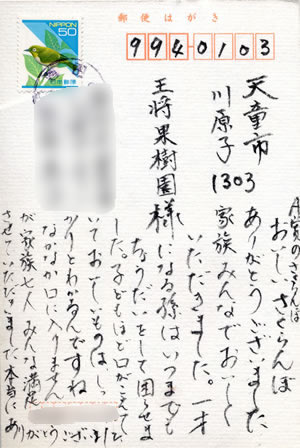 郵便はがき
NIPPON
50
9940103
天童市
川原子1303
王将果樹園様
おいしいさくらんぼ
ありがとうございました
家族みんなでおいしく
いただきました。一才
になる孫はいつまでも
ちょうだいをして困らせま
した。子どもほど口がこえて
いておいしいものは しっ
かりとわかるんですね
なかなか口に入りません
が家族七人 みんな満足
させていただきました。本当にあ
りがとうございました